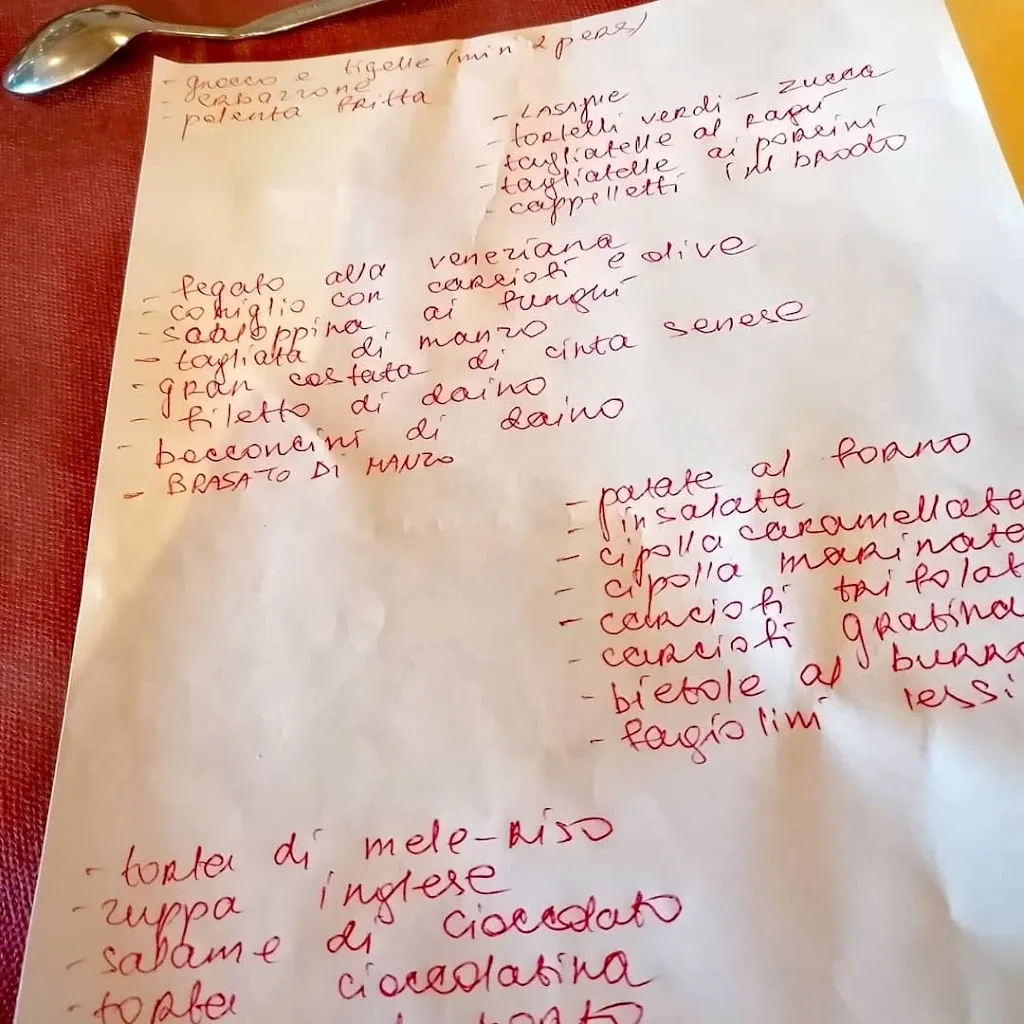 - gnocco e tigelle (min 2 pers)
- erbazzone
- polenta fritta
- LASAGNE
- tortelli verdi - zucca
- tagliatelle al ragù
- tagliatelle ai porcini
- cappelletti in brodo
- fegato alla veneziana
- coniglio con carciofi e olive
- scaloppina ai funghi
- tagliata di manzo
- gran costata di cinta senese
- filetto di daino
- bocconcini di daino
- BRASATO DI MANZO
- patate al forno
- insalata
- cipolla caramellate
- cipolla marinate
- carciofi trifolat
- carciofi gratina
- bietole al burro
- fagiolini lessi
- torta di mele-riso
- zuppa inglese
- salame di cioccolato
- torta cioccolatina